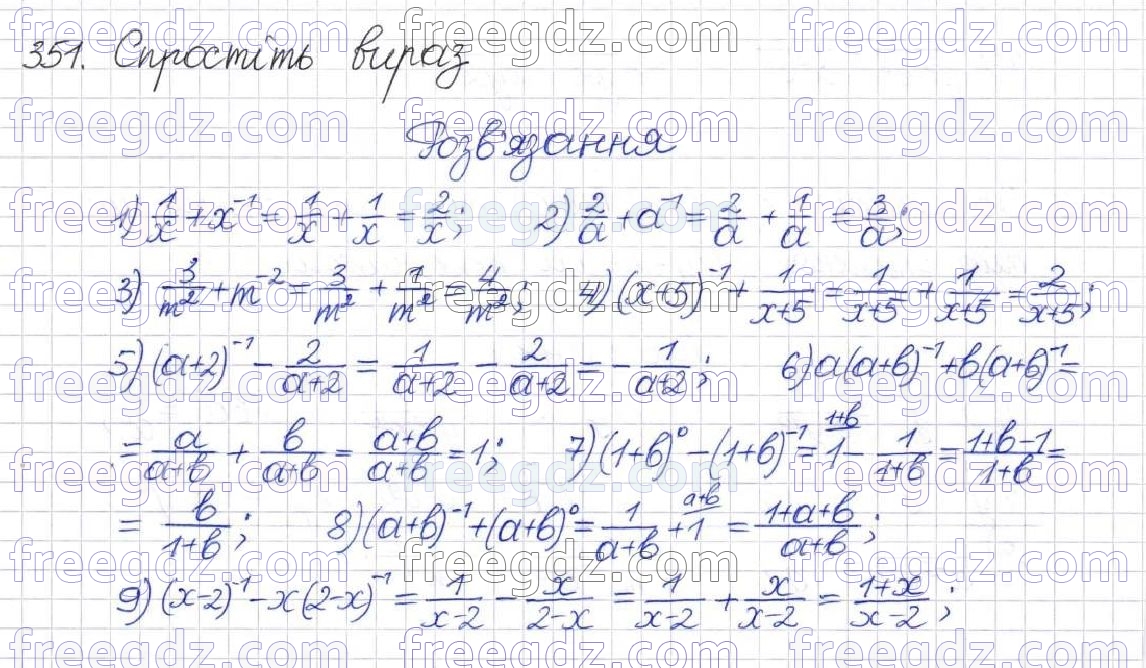 351. Спростіть вираз
Розв'язання
1) 1/x + x⁻¹ = 1/x + 1/x = 2/x; 2) 2/a + a⁻¹ = 2/a + 1/a = 3/a;
3) 3/m² + m⁻² = 3/m² + 1/m² = 4/m²; 4) (x+5)⁻¹ + 1/(x+5) = 1/(x+5) + 1/(x+5) = 2/(x+5);
5) (a+2)⁻¹ - 2/(a+2) = 1/(a+2) - 2/(a+2) = - 1/(a+2); 6) a(a+b)⁻¹ + b(a+b)⁻¹ =
= a/(a+b) + b/(a+b) = (a+b)/(a+b) = 1; 7) (1+b)⁰ - (1+b)⁻¹ = 1 (1+b) - 1/(1+b) = (1+b-1)/(1+b) =
= b/(1+b); 8) (a+b)⁻¹ + (a+b)⁰ = 1/(a+b) + 1 (a+b) = (1+a+b)/(a+b);
9) (x-2)⁻¹ - x(2-x)⁻¹ = 1/(x-2) - x/(2-x) = 1/(x-2) + x/(x-2) = (1+x)/(x-2);
freegdz.com